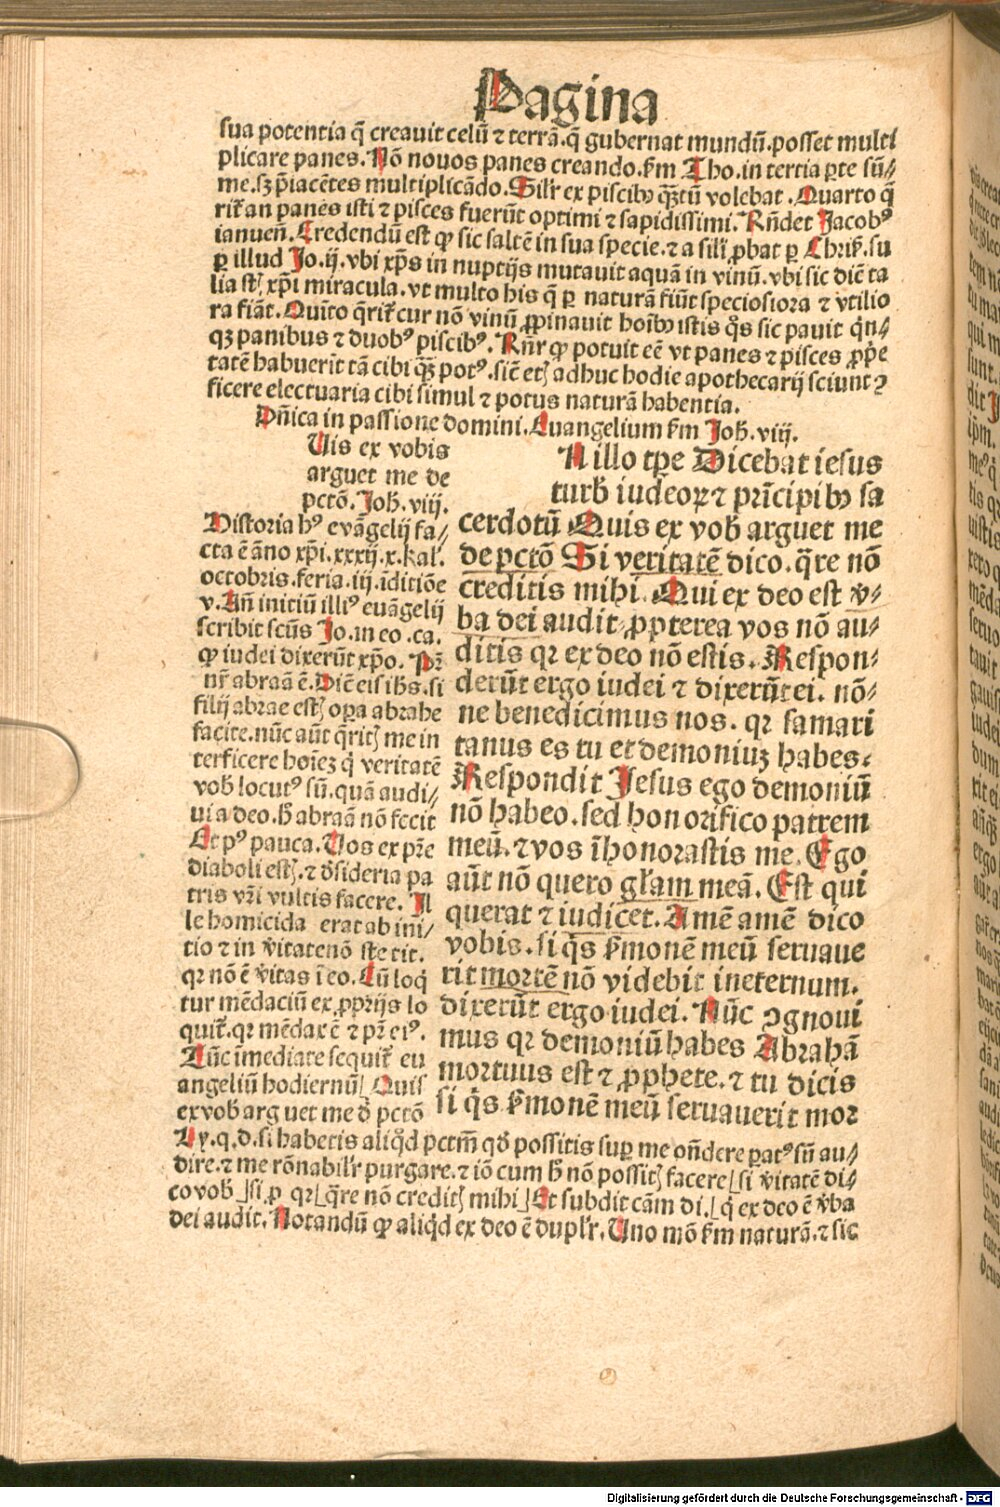 Pagina
sua potentia q̄ creauit celū ⁊ terrā.q̄ gubernat mundū.posset multi
plicare panes.Nō nouos panes creando.ẜm Tho.in tertia ꝑte sū⸗
me.sꝫ p̄iacētes multiplicādo.Silr̄ ex piscibꝰ qꝫtū volebat.Quarto q̄
rit̄ an panes isti ⁊ pisces fuerūt optimi ⁊ sapidissimi.Rn̄det Jacobꝰ
ianuen̄.Credendū est ꝙ sic saltē in sua specie.⁊ a sili ꝓbat ꝑ Chris̄.su
ꝑ illud Jo.ij.vbi xp̄s in nuptijs mutauit aquā in vinū.vbi sic dic̄ ta
lia st̄ xp̄i miracula.vt multo his q̄ ꝑ naturā fiūt speciosiora ⁊ vtilio
ra fiāt.Quīto q̄rit̄ cur nō vinū ꝓpinauit hoībꝰ istis q̄s sic pauit qn̄⸗
qꝫ panibus ⁊ duobꝰ piscibꝰ.Rn̄r ꝙ potuit eē vt panes ⁊ pisces ꝓpe
tatē habuerīt tā cibi qꝫ̄ potꝰ.sic̄ etiā adhuc hodie apothecarij sciunt ꝯ
ficere electuaria cibi simul ⁊ potus naturā habentia.
Dn̄ica in passione domini.Euangelium ẜm Joh̄.viij.
Uis ex vobis
arguet me de
pctō.Joh̄.viij.
Historia hꝰ evāgelij fa⸗
cta ē āno xp̄i.xxxij.x.kal.
octobris.feria.iij.īditiōe
v.An̄ initiū illiꝰ euāgelij
scribit scūs Jo.in eo.ca.
ꝙ iudei dixerūt xp̄o.Pr̄
nr̄ abraā ē.Dic̄ eis ihs̄.si
filij abrae estꝭ oꝑa abrahe
facite.nūc aūt q̄ritꝭ me in
terficere hoīeꝫ q̇ veritatē
vob̄ locutꝰ sū.quā audi⸗
ui a deo.h̄ abraā nō fecit
Et pꝰ pauca.Uos ex pr̄e
diaboli estꝭ.⁊ d̄sideria pa
tris vr̄i vultis facere.Il
le homicida erat ab ini⸗
tio ⁊ in v̄itate nō stetit.
qr nō ē v̄itas ī eo.Cū loq̇
tur mēdaciū ex ꝓprijs lo
quit̄.qr mēdax ē ⁊ pr̄ eiꝰ.
Tūc īmediate sequit̄ eu
angeliū hodiernū⌊Quis
ex vob̄ arguet me d̄ pctō
N illo tꝑe Dicebat iesus
turb̄ iudeoꝝ ⁊ prīcipibꝰ sa
cerdotū Quis ex vob̄ arguet me
de pctō Si veritatē dico.q̄re nō
creditis mihi.Qui ex deo est v̄⸗
ba dei audit ꝓpterea vos nō au⸗
ditis qr ex deo nō estis.Respon⸗
derūt ergo iudei ⁊ dixerūt ei.nō⸗
ne benedicimus nos.qr samari
tanus es tu et demoniuꝫ habes.
Respondit Jesus ego demoniū
nō habeo.sed honorifico patrem
meū.⁊ vos īhonorastis me.Ego
aūt nō quero glam̄ meā.Est qui
querat ⁊ iudicet.Amē amē dico
vobis.si q̇s ẜmonē meū seruaue
rit mortē nō videbit ineternum.
dixerūt ergo iudei.Nūc ꝯgnoui
mus qr demoniū habes Abrahā
mortuus est ⁊ ꝓphete.⁊ tu dicis
si q̇s ẜmonē meū seruauerit mor
Ay.q.d.si habetis aliq̇d pctm̄ qd̄ possitis suꝑ me on̄dere ꝑatꝰ sū au⸗
dire.⁊ me rōnabilr̄ purgare.⁊ iō cum h̄ nō possitꝭ facere⌊si v̄itatē di⸗
co vob̄⌋si.ꝑ qr⌊q̄re nō creditꝭ mihi⌋Et subdit cām di.⌊q̇ ex deo ē v̄ba
dei audit.Notandū ꝙ aliq̇d ex deo ē duplr̄.Uno mō ẜm naturā.⁊ sic
Digitalisierung gefördert durch die Deutsche Forschungsgemeinschaft - DFG